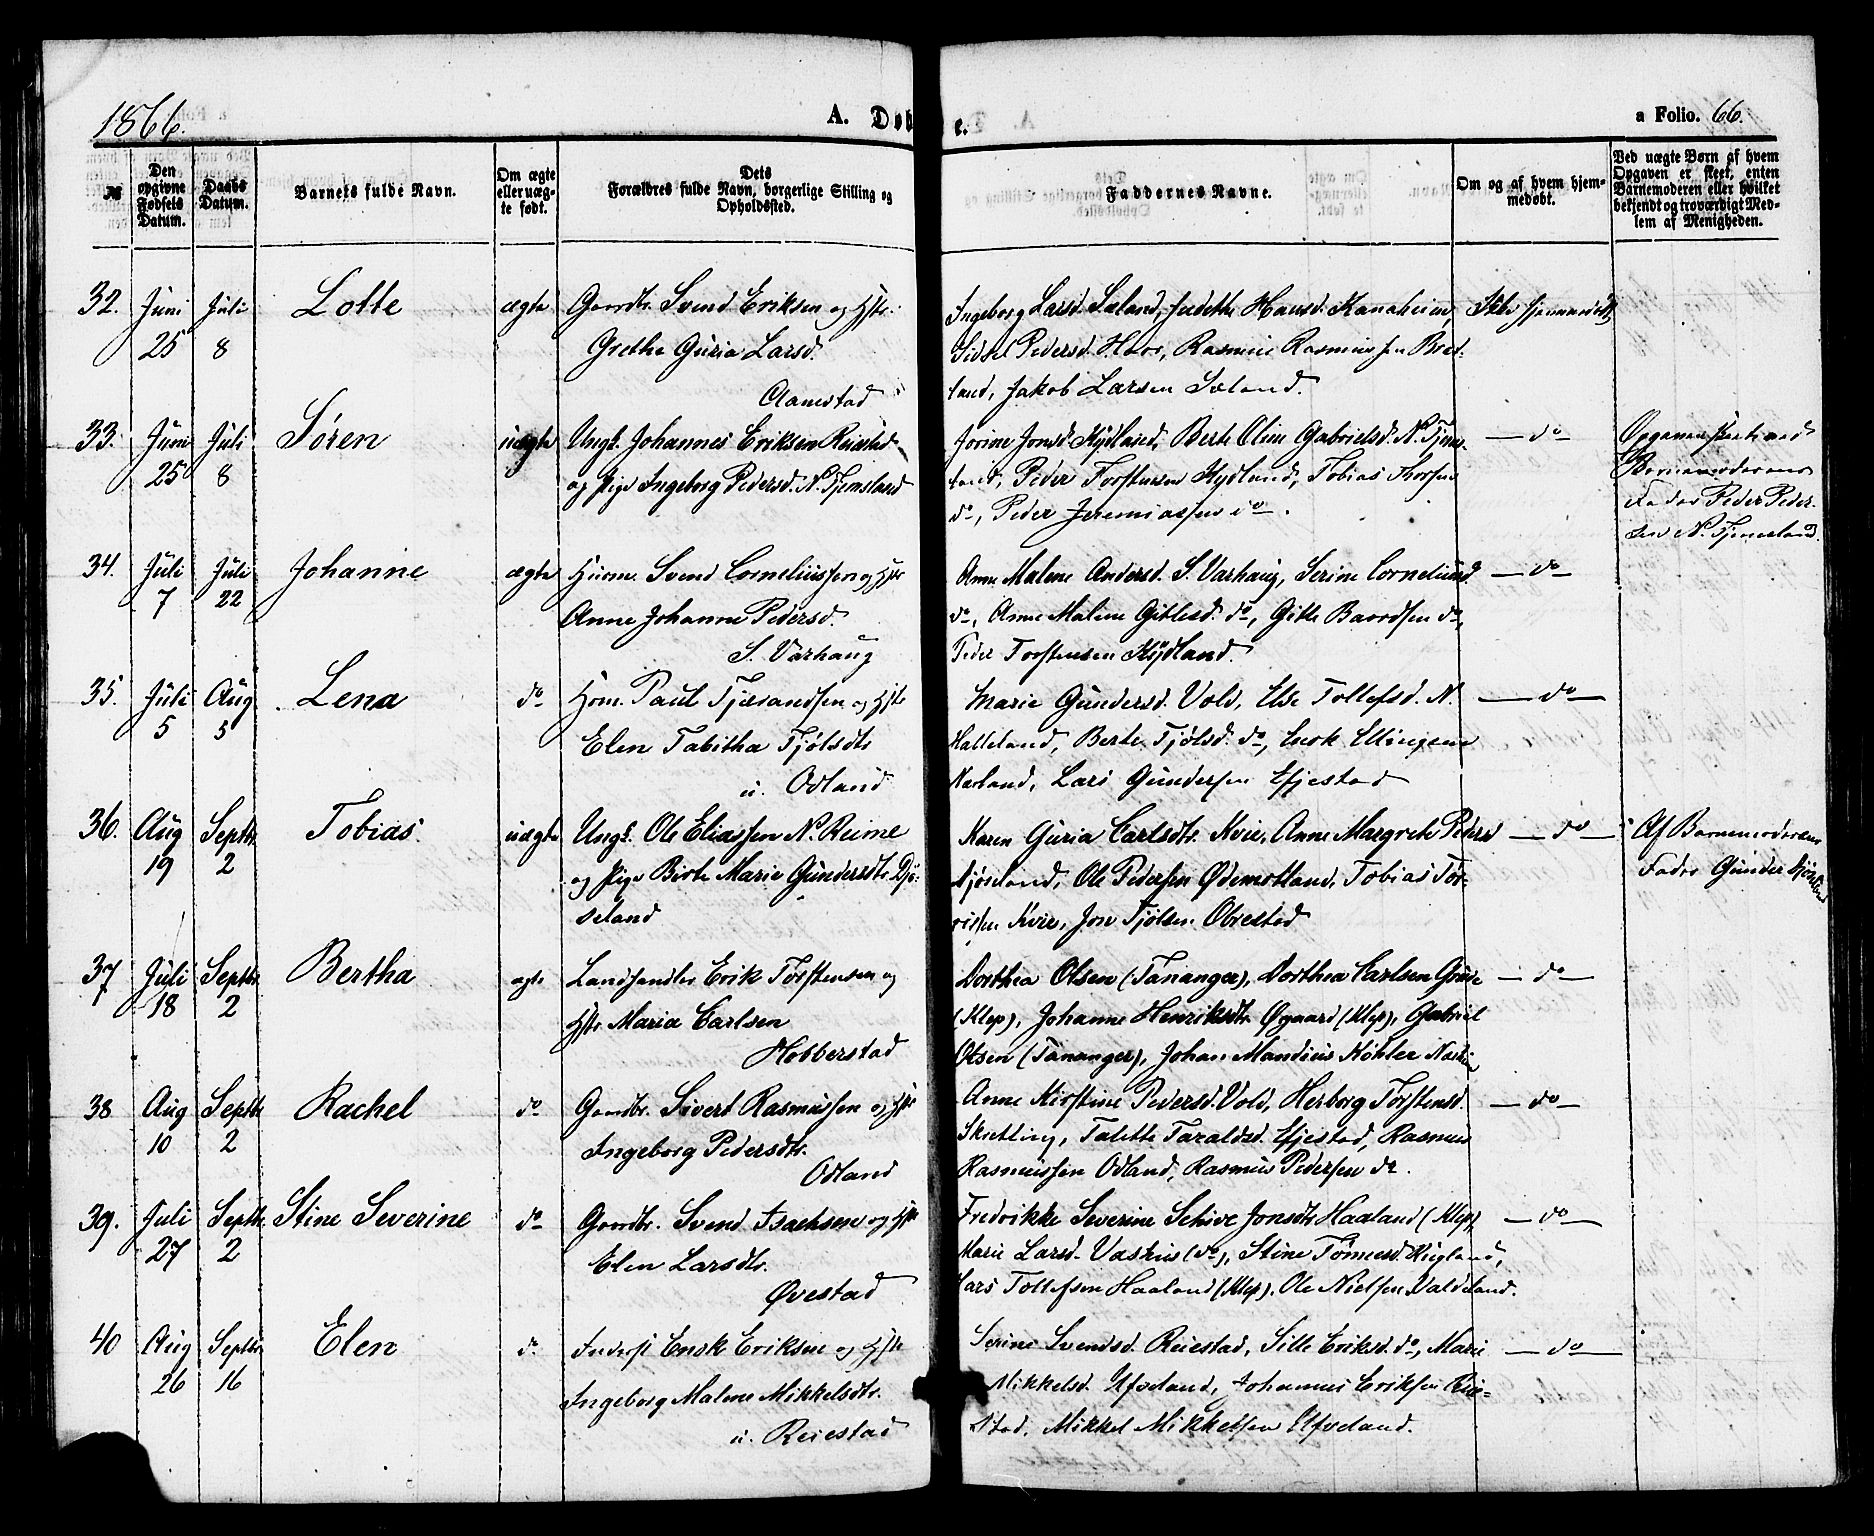 1866.
A. Døb
e.
a Folio. 66.
№
Den opgivne Fødsels Datum.
Daabs Datum.
Barnets fulde Navn.
Om ægte eller uæg- te født.
Dets Forældres fulde Navn, borgerlige Stilling og Opholdssted.
Faddernes Navne.
Om og af hvem hjem- medøbt.
Ved uægte Børn af hvem Opgaven er skeet, enten Barnemoderen eller hvilket bekjendt og troværdigt Med- lem af Menigheden.
32. Juni 25 Juli 8 Lotte ægte Gaardbr. Svend Eriksen og Hstr.
Grethe Guria Larsd.
Aanestad
Ingeborg Larsd. Sæland, Judithe Hansd. Kanaheim,
Sidsel Pedersd. Haar, Rasmus Rasmussen Bred-
land, Jakob Larsen Sæland.
Ikke hjemmedøbt
33. Juni 25 Juli 8 Søren uægte Ungk. Johannes Eriksen Reiestad
og Pige Ingeborg Pedersd. N. Tjemsland
Jorine Jonsd. Kydland, Berte Oline Gabrielsd. N. Tjems-
land, Peder Torstensen Kydland, Tobias Thorsen
do, Peder Jeremiassen do.
— do —
Opgaven skeet ved
Barnemoderens
Fader Peder Peder-
sen N. Tjemsland.
34. Juli 7 Juli 22 Johanne ægte Huusm. Svend Corneliussen og Hstr
Anne Johanne Pedersd.
S. Varhaug
Anne Malene Andersd. S. Varhaug, Serine Corneliusd.
do, Anne Malene Gitlesd. do, Gitle Baardsen do,
Peder Torstensen Kydland.
— do —
35. Juli 5 Aug 5 Lena do Hsm. Paul Tjærandsen og Hstr
Elen Tabitha Tjølsdtr
u. Odland
Marie Gundersd. Vold, Else Tollefsd. N.
Hatteland, Berte Tjølsd. do, Enok Ellingsen
Nærland, Lars Gundersen Efjestad
— do —
36. Aug 19 Septbr. 2 Tobias. uægte Ungk. Ole Eliassen N. Reime
og Pige Birte Marie Gundersdtr. Djø-
seland
Karen Guria Carlsdtr. Kvie, Anne Margrete Pedersd
Njøseland, Ole Pedersen Ødemotland, Tobias Tør-
rissen Kvie, Jon Tjølsen Obrestad
— do —
Af Barnemoderens
Fader Gunder
37 Juli 18 Septbr 2 Bertha ægte Landhandler Erik Torstensen og
Hstr. Maria Carlsen
Hobberstad
Dorthea Olsen (Tananger), Dorthea Carlsen Grude
(Klep), Johanne Henriksdtr. Øgaard (Klep), Gabriel
Olsen (Tananger), Johan Mandius Køhler
— do —
38 Aug 10 Septbr 2 Rachel do Gaardbr. Sivert Rasmussen og Hstr
Ingeborg Pedersdtr.
Odland
Anne Kirstine Pedersd. Vold, Herborg Torstensd.
Skretting, Talette Taraldsd. Efjestad, Rasmus
Rasmussen Odland, Rasmus Pedersen do.
— do —
39. Juli 27 Septbr. 2 Stine Severine do Gaardbr. Svend Isachsen og Hstr
Elen Larsdtr.
Øvestad
Fredrikke Severine Schive Jonsdtr Haaland (Klep)
Marie Larsd. Vashus (do), Stine Tønnesd. Rugland,
Lars Tollefsen Haaland (Klep), Ole Nielsen Valdeland.
— do —
40 Aug 26 Septbr 16 Elen do Inderst Enok Eriksen og Hstr
Ingeborg Malene Mikkelsdtr.
u. Reiestad
Serine Svendsd. Reiestad, Sille Eriksd. do, Marie
Mikkelsd. Ueland, Johannes Eriksen Reie-
stad, Mikkel Mikkelsen Ueland.
— do —